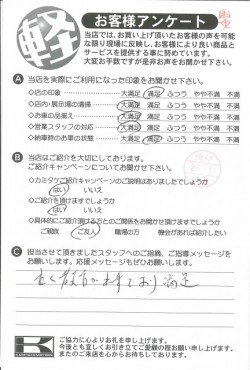 軽
お客様アンケート
当店では、お買い上げ頂いたお客様の声を可能
な限り現場に反映し、お客様により良い商品と
サービスを提供する事に努めております。
大変お手数ですが是非お声をお聞かせ下さい。
A 当店を実際にご利用になった印象をお聞かせ下さい。
◇店の印象 大満足 満足 ふつう やや不満 不満
◇店内・展示場の清掃 大満足 満足 ふつう やや不満 不満
◇お車の品揃え 大満足 満足 ふつう やや不満 不満
◇営業スタッフの対応 大満足 満足 ふつう やや不満 不満
◇納車時のお車の状態 大満足 満足 ふつう やや不満 不満
B 当店はご紹介を大切にしております。
ご紹介キャンペーンについてお聞かせ下さい。
◇カミタケご紹介キャンペーンのご説明はありましたでしょうか
はい いいえ
◇ご紹介を頂けますでしょうか
はい いいえ
◇具体的にご紹介頂ける方とのご関係をお聞かせ頂けますでしょうか
ご親族 ご友人 職場の方 機会があれば紹介したい
C 担当させて頂きましたスタッフへのご指摘、ご指導メッセージを
お願いします。応援メッセージもぜひお願いします。
満足
K
ご協力に心よりお礼を申し上げます。
今後とも宜しくお引き立てご愛顧の程お願い申し上げます。
またのご来店を心からお待ちしております。